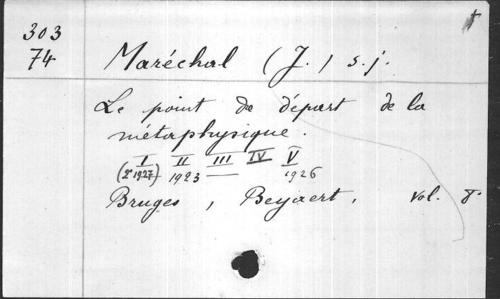 303
74
Maréchal (J.) s.j.
Le point de départ de la
métaphysique.
I II III IV V
(2e 1927) 1923 — 1926
Bruges, Beyaert, vol. 8°